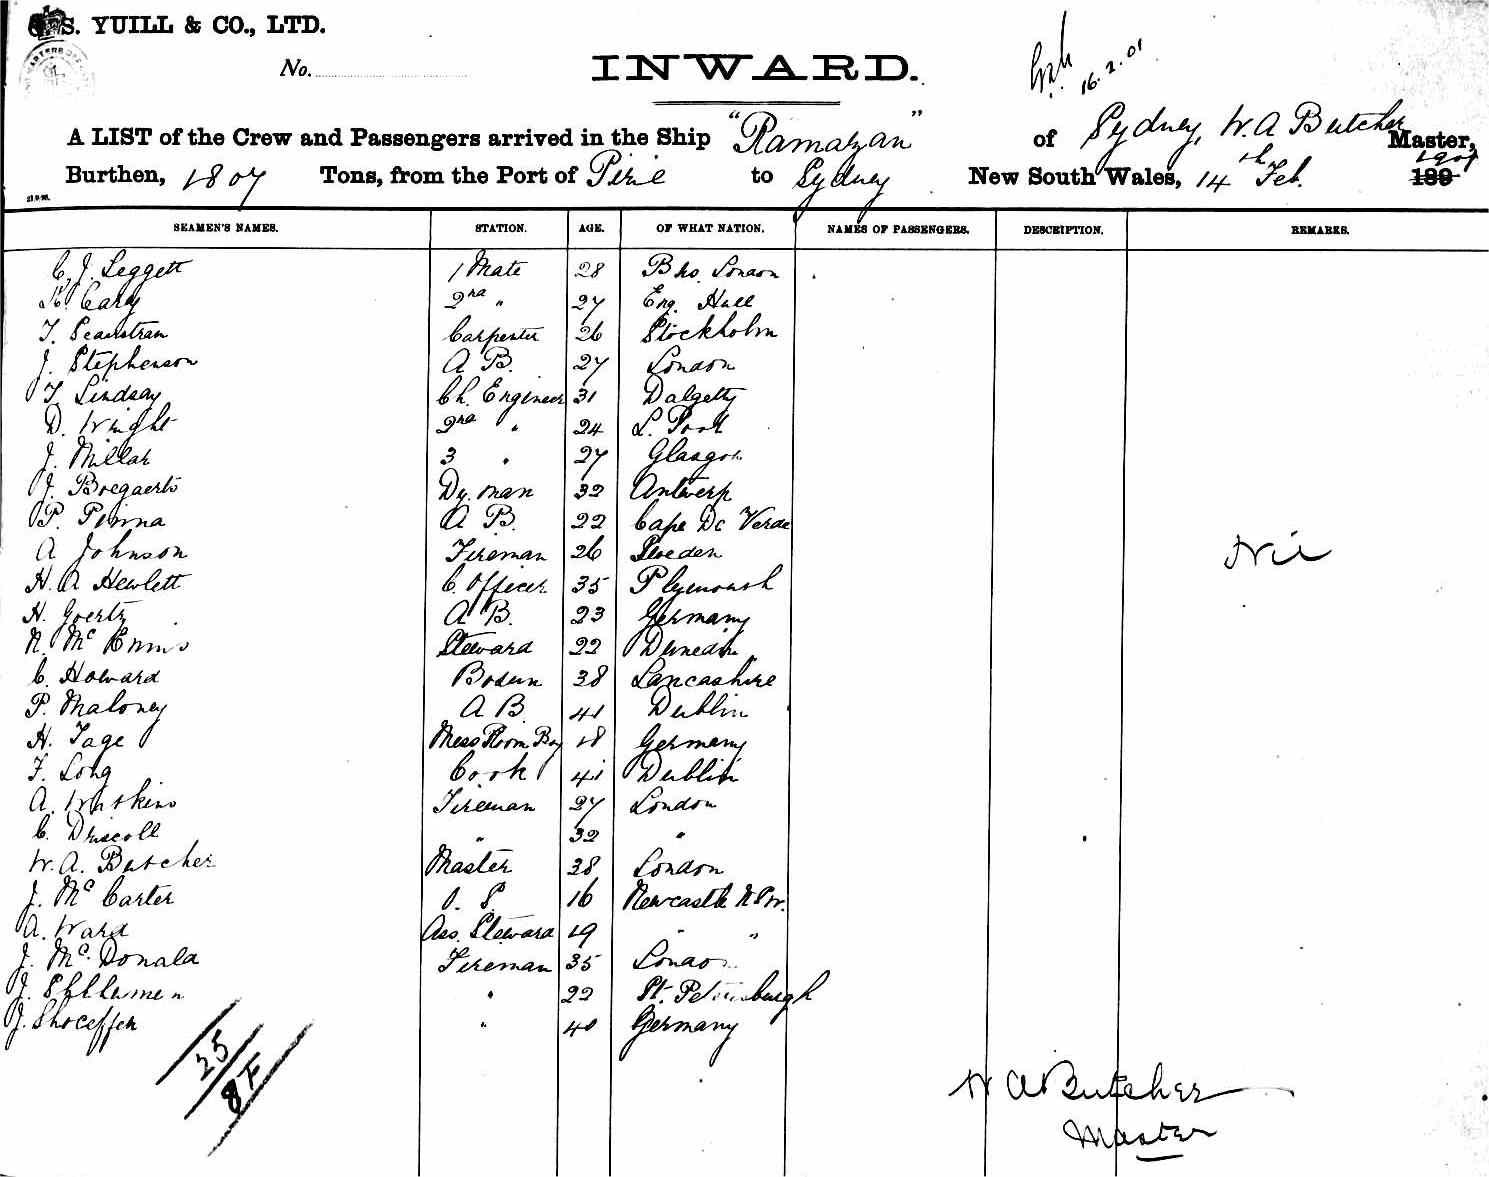 S. YUILL & CO., LTD.
No.
INWARD.
16.2.01
A LIST of the Crew and Passengers arrived in the Ship "Ramazan" of Sydney, W. A Butcher Master,
Burthen, 1807 Tons, from the Port of Pirie to Sydney New South Wales, 14th Feb. 1901 189
SEAMEN'S NAMES. STATION. AGE. OF WHAT NATION. NAMES OF PASSENGERS. DESCRIPTION. REMARKS.
C. J. Leggett 1 Mate 28 London
Cary 2nd " 27 Eng. Hull
T. Carpenter 26 Stockholm
J. Stephenson A B. 27 London
T. Lindsay Ch. Engineer 31 Dalgetty
D. Wright 2nd " 24 L. Pool
J. Millar 3 " 27 Glasgow
J. Boegaerts Dy. man 32 Antwerp
P. Pinna A B. 22 Cape De Verde
A Johnson Fireman 26 Sweden
H. A Hewlett C. Officer 35 Plymouth
H. Goertz A B. 23 Germany
N. McEnnis Steward 22 Dunedin
C. Howard Bosun 38 Lancashire
P. Maloney A B 41 Dublin
H. Tage Mess Room Boy 18 Germany
F. Long Cook 41 Dublin
A. Watkins Fireman 27 London
C. Driscoll " 32 "
W. A. Butcher Master 38 London
J. McCarter O. S. 16 Newcastle N S W.
A. Ward Ass. Steward 19 " "
J. McDonald Fireman 35 London
J. " 22 St. Petersburgh
J. Shoceffer " 40 Germany
Nil
25
8F
W A Butcher
Master